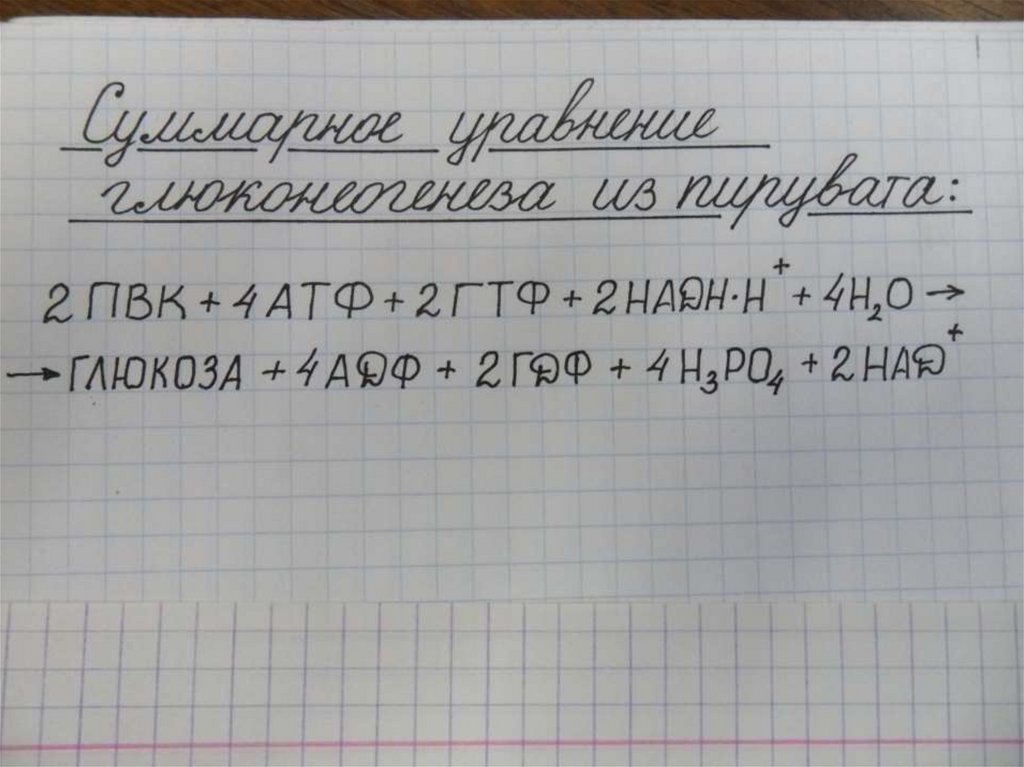 Суммарное уравнение
глюконеогенеза из пирувата:
2 ПВК + 4 АТФ + 2 ГТФ + 2 НАДН·Н⁺ + 4H₂O →
→ ГЛЮКОЗА + 4 АДФ + 2 ГДФ + 4 H₃PO₄ + 2 НАД⁺